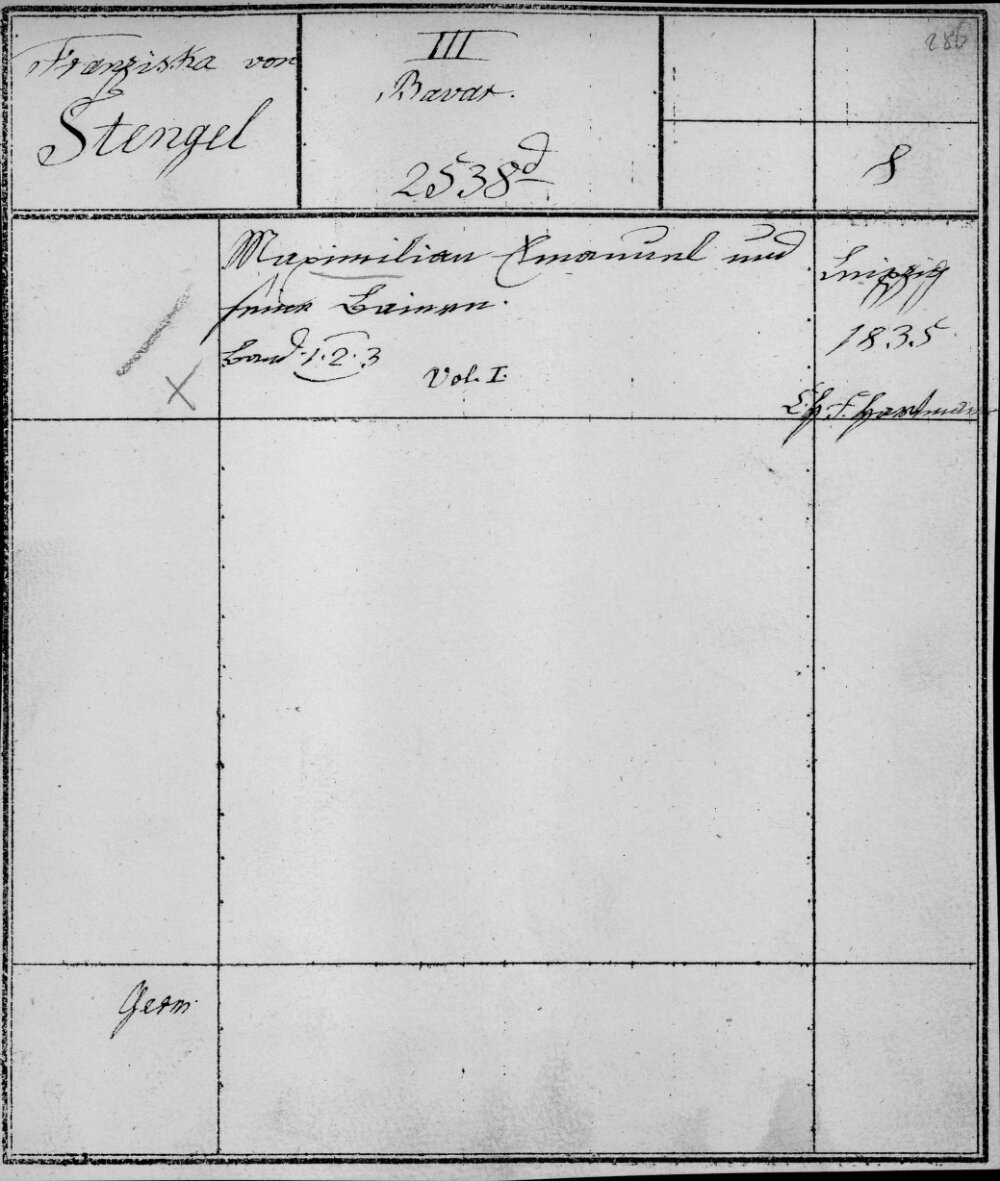 Franziska von
Stengel
III
Bavar.
2538d
286
8
Maximilian Emanuel und
seine Baiern.
Band. 1. 2. 3
Vol. I.
Leipzig
1835.
Ch. F. Hartmann
Germ.